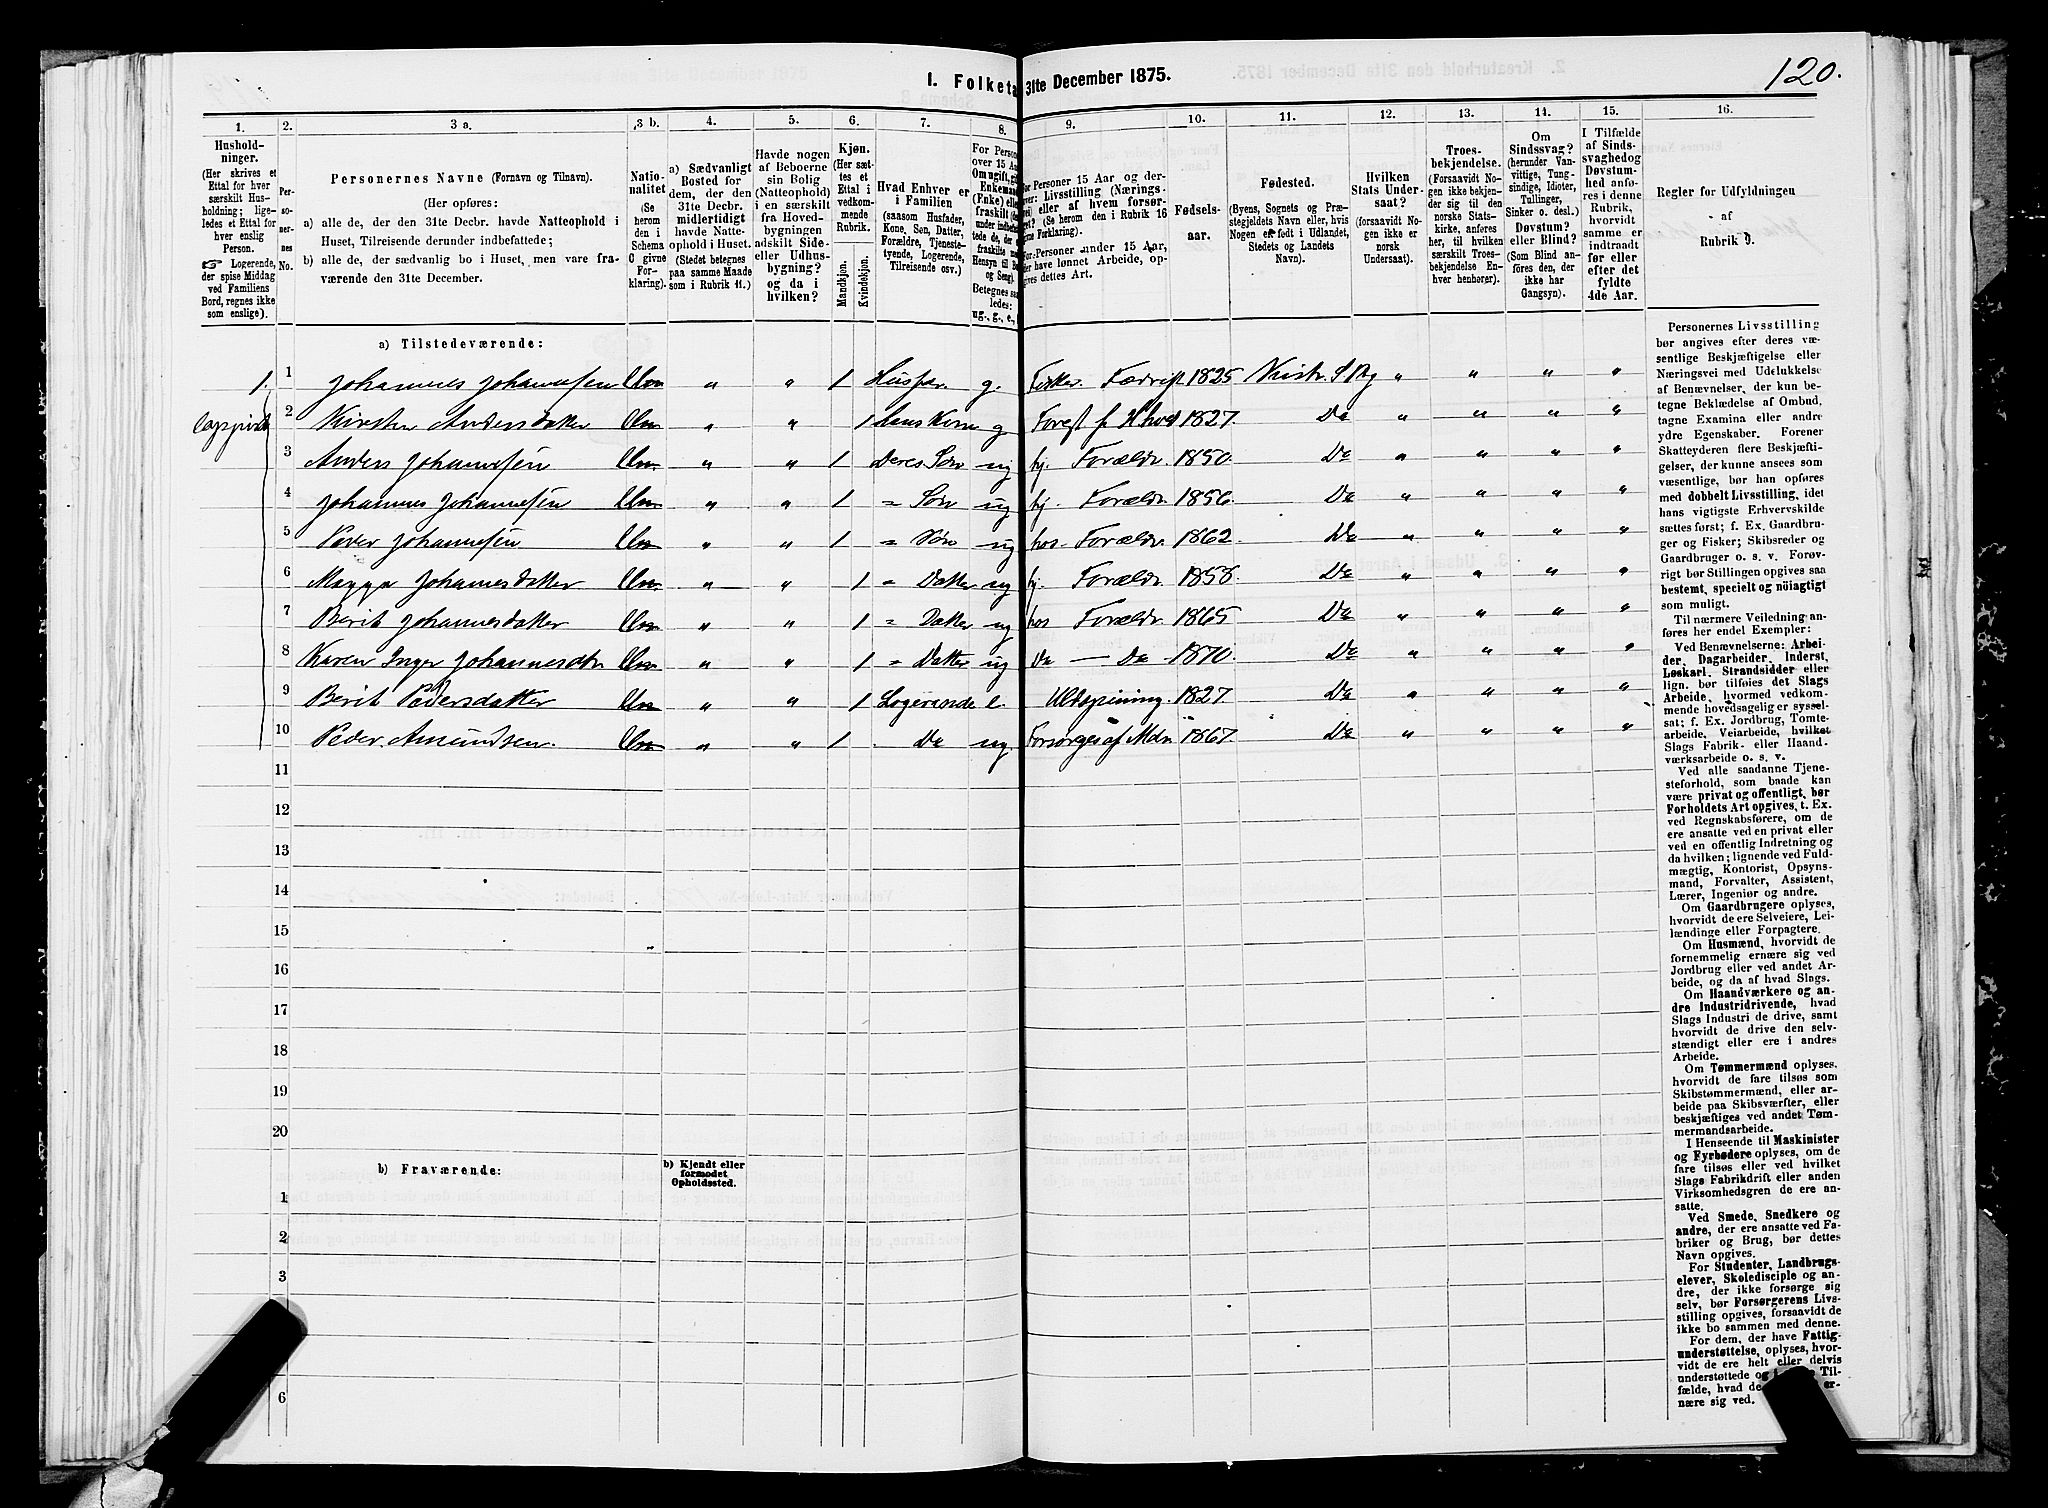 120.
1. Folketa 31te December 1875.
1. 2. 3 a. 3 b. 4. 5. 6. 7. 8. 9. 10. 11. 12. 13. 14. 15. 16.
Hushold-
ninger.
(Her skrives et
Ettal for hver
særskilt Hus-
holdning; lige-
ledes et Ettal for
hver enslig
Person.
☞ Logerende,
der spise Middag
ved Familiens
Bord, regnes ikke
som enslige).
Per-
so-
ner-
nes
No.
Personernes Navne (Fornavn og Tilnavn).
(Her opføres:
a) alle de, der den 31te Decbr. havde Natteophold i
Huset, Tilreisende derunder indbefattede;
b) alle de, der sædvanlig bo i Huset, men vare fra-
værende den 31te December.
Natio-
nalitet
(Se
herom
den i
Schema
C givne
For-
klaring).
a) Sædvanligt
Bosted for
dem, der den
31te Decbr.
midlertidigt
havde Natte-
ophold i Huset.
(Stedet betegnes
paa samme Maade
som i Rubrik 11.)
Havde nogen
af Beboerne
sin Bolig
(Natteophold)
i en særskilt
fra Hoved-
bygningen
adskilt Side-
eller Udhus-
bygning?
og da i
hvilken?
Kjøn.
(Her sæt-
tes et
Ettal i
vedkom-
mende
Rubrik.
Mandkjøn.
Kvindekjøn.
Hvad Enhver er
i Familien
(saasom Husfader,
Kone, Søn, Datter,
Forældre, Tjeneste-
tyende, Logerende,
Tilreisende osv.)
For Person
over 15 Aar
Om ugift, gi
Enkeman
(Enke) elle
fraskilt (de
under indbefat-
tede de, de
fraskilte me
Hensyn til B
og Seng).
Betegnes saa
ledes:
ug., g., e.,
For Personer 15 Aar og der-
over: Livsstilling (Nærings-
vei) eller af hvem forsør-
get? (Se herom den i Rubrik 16
givne Forklaring).
For Personer under 15 Aar,
der have lønnet Arbeide, op-
gives dettes Art.
Fødsels-
aar.
Fødested.
(Byens, Sognets og Præ-
stegjeldets Navn eller, hvis
Nogen er født i Udlandet,
Stedets og Landets
Navn).
Hvilken
Stats Under-
saat?
(forsaavidt No-
gen ikke er
norsk
Undersaat).
Troes-
bekjendelse.
(Forsaavidt No-
gen ikke bekjen-
der sig til den
norske Stats-
kirke, anføres
her, til hvilken
særskilt Troes-
bekjendelse En-
hver henhører).
Om
Sindssvag?
(herunder Van-
vittige, Tung-
sindige, Idioter,
Tullinger,
Sinker o. desl.)
Døvstum?
eller Blind?
(Som Blind an-
føres den, der
ikke har
Gangsyn).
I Tilfælde
af Sinds-
svaghed og
Døvstum-
hed anfø-
res i denne
Rubrik,
hvorvidt
samme er
indtraadt
før eller
efter det
fyldte
4de Aar.
Regler for Udfyldningen
af
Rubrik 9.
a) Tilstedeværende:
1. 1 Johannes Johannesen " " 1 Husfar g. 1825 " " " "
2 Kirsten Andersdatter " " 1 Hans Kone g 1827. Do " " " "
3 Anders Johannesen " " 1 Deres Søn ug hj. Forældr. 1850. Do " " " "
4 Johannes Johannesen " " 1 = Søn ug hj. Forældr. 1856. Do " " " "
5 Peder Johannesen " " 1 = Søn ug hos Forældr. 1862. Do " " " "
6 Magga Johannesdatter " " 1 = Datter ug hj. Forældr. 1858. Do " " " "
7 Berit Johannesdatter " " 1 = Datter ug hos Forældr. 1865 Do " " " "
8 Karen Inger Johannesdtr " " 1 = Datter ug Do — Do 1870. Do " " " "
9 Berit Pedersdatter " " 1 Logerende e. Uldspinning. 1827. Do " " " "
10 Peder Amundsen. " " 1 Do ug. Forsørges af Mdn. 1867. Do " " " "
11
12
13
14
15
16
17
18
19
20
b) Fraværende:
b) Kjendt eller
formodet
Opholdssted.
1
2
3
4
5
6
Personernes Livsstilling
bør angives efter deres væ-
sentlige Beskjæftigelse eller
Næringsvei med Udelukkelse
af Benævnelser, der kun be-
tegne Beklædelse af Ombud,
tagne Examina eller andre
ydre Egenskaber. Forener
Skatteyderen flere Beskjæfti-
gelser, der kunne ansees som
væsentlige, bør han opføres
med dobbelt Livsstilling, idet
hans vigtigste Erhvervskilde
sættes først; f. Ex. Gaardbru-
ger og Fisker; Skibsreder og
Gaardbruger o. s. v. Forøv-
rigt bør Stillingen opgives saa
bestemt, specielt og nöiagtigt
som muligt.
Til nærmere Veiledning an-
føres her endel Exempler:
Ved Benævnelserne: Arbei-
der, Dagarbeider, Inderst,
Løskarl, Strandsidder eller
lign. bør tilføies det Slags
Arbeide, hvormed vedkom-
mende hovedsagelig er syssel-
sat; f. Ex. Jordbrug, Tomte-
arbeide, Veiarbeide, hvilket
Slags Fabrik- eller Haand-
værksarbeide o. s. v.
Ved alle saadanne Tjene-
steforhold, som baade kan
være privat og offentligt, bør
Forholdets Art opgives, t. Ex.
ved Regnskabsførere, om de
ere ansatte ved en privat eller
ved en offentlig Indretning og
da hvilken; lignende ved Fuld-
mægtig, Kontorist, Opsyns-
mand, Forvalter, Assistent,
Lærer, Ingeniør og andre.
Om Gaardbrugere oplyses,
hvorvidt de ere Selveiere, Lei-
lændinge eller Forpagtere.
Om Husmænd, hvorvidt de
fornemmelig ernære sig ved
Jordbrug eller ved andet Ar-
beide, og da af hvad Slags.
Om Haandværkere og an-
dre Industridrivende, hvad
Slags Industri de drive, samt
hvorvidt de drive den selv-
stændigt eller ere i andres
Arbeide.
Om Tømmermænd oplyses,
hvorvidt de fare tilsøs som
Skibstømmermænd, eller ar-
beide paa Skibsværfter, eller
beskjæftiges ved andet Tøm-
mermandsarbeide.
I Henseende til Maskinister
og Fyrbødere oplyses, om de
fare tilsøs eller ved hvilket
Slags Fabrikdrift eller anden
Virksomhedsgren de ere an-
satte.
Ved Smede, Snedkere og
andre, der ere ansatte ved Fa-
briker og Brug, bør dettes
Navn opgives.
For Studenter, Landbrugs-
elever, Skoledisciple og an-
dre, der ikke forsørge sig
selv, bør Forsørgerens Livs-
stilling opgives, forsaavidt de
ikke bo sammen med denne.
For dem, der have Fattig-
understøttelse, oplyses, hvor-
vidt de ere helt eller delvis
understøttede og Til-
fælde, hvad de er-
nære sig ved.